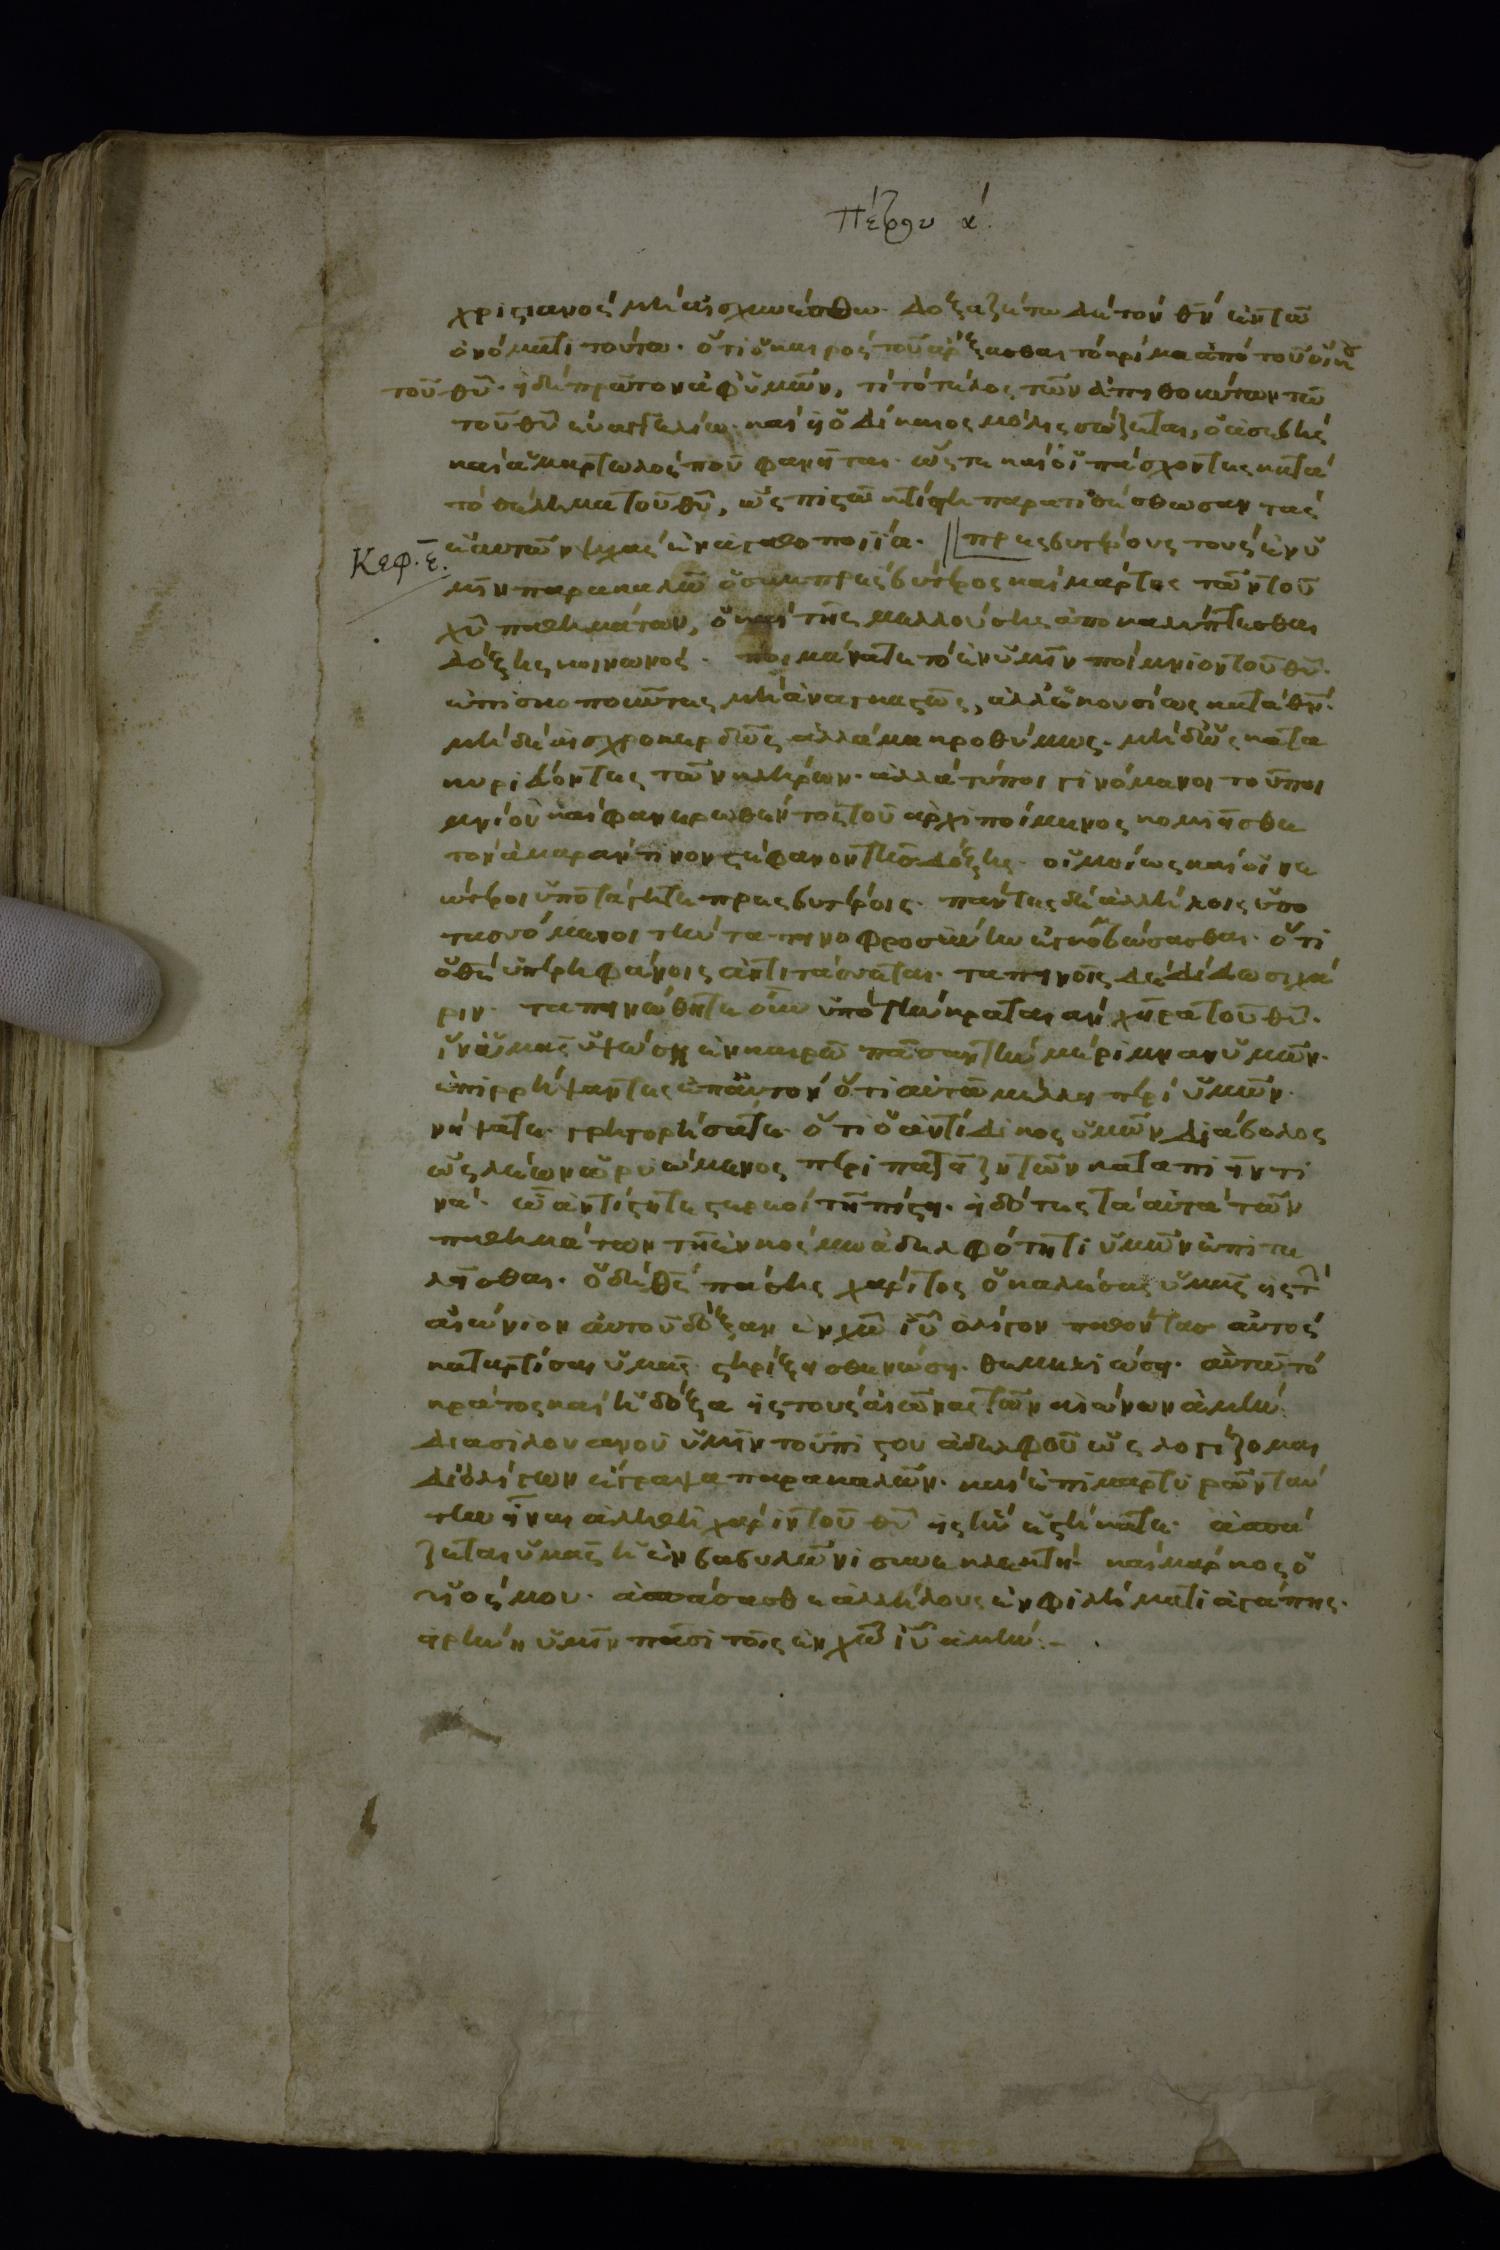 Πέτρου α´.
χριστιανός μή αἰσχυνέσθω. δοξαζέτω δέ τόν θν́ ἐν τῶ
ὀνόματι τούτω. ὅτι ὁ καιρός τοῦ ἄρξασθαι τό κρίμα ἀπό τοῦ οἴκου
τοῦ θῦ. εἰ δέ πρῶτον ἀφ ὑμῶν, τί τό τέλος τῶν ἀπειθούντων τῶ
τοῦ θῦ εὐαγγελίω. καί εἰ ὁ δίκαιος μόλις σώζεται, ὁ ἀσεβής
καί ἁμαρτωλός ποῦ φανεῖται. ὥστε καί οἱ πάσχοντες κατά
τό θέλημα τοῦ θῦ, ὡς πιστῶ κτίστη παρατιθέσθωσαν τάς
ἑαυτῶν ψυχάς ἐν ἀγαθοποιΐα. || πρεσβυτέρους τούς ἐν ὑ
Κεφ. ε̄.
μῖν παρακαλῶ ὁ συμπρεσβύτερος καί μάρτυς τῶν τοῦ
χῦ παθημάτων, ὁ καί τῆς μελλούσης ἀποκαλύπτεσθαι
δόξης κοινωνός. ποιμάνατε τό ἐν ὑμῖν ποίμνιον τοῦ θῦ.
ἐπισκοποῦντες μή ἀναγκαστῶς, ἀλλ ἑκουσίως κατά θν́.
μή δέ αἰσχροκερδῶς ἀλλά μακροθύμως. μή δ ὡς κατα
κυριεύοντες τῶν κλήρων. ἀλλά τύποι γινόμενοι τοῦ ποι
μνίου καί φανερωθέντος τοῦ ἀρχιποίμενος κομιεῖσθε
τόν ἀμαράντινον στέφανον τῆς δόξης. ὁμοίως καί οἱ νε
ώτεροι ὑποτάγητε πρεσβυτέροις. πάντες δέ ἀλλήλοις ὑπο
τασσόμενοι τήν ταπεινοφροσύνην ἐγκομβώσασθαι. ὅτι
ὁ θς́ ὑπερηφάνοις ἀντιτάσσεται. ταπεινοῖς δέ δίδωσι χά
ριν. ταπεινώθητε οὖν ὑπό τήν κραταιάν χεῖρα τοῦ θῦ.
ἵνα ὑμᾶς ὑψώση ἐν καιρῶ πᾶσαν τήν μέριμναν ὑμῶν.
ἐπιρρήψαντες ἐπ αὐτόν ὅτι αὐτῶ μέλλει περί ὑμῶν.
νήψατε. γρηγορήσατε. ὅτι ὁ ἀντίδικος ὑμῶν διάβολος
ὡς λέων ὠρυώμενος περιπατεῖ ζητῶν καταπιεῖν τι
νά. ὧ ἀντίστητε στερεοί τῆ πίστει. εἰδότες τά αὐτά τῶν
παθημάτων τῆ ἐν κόσμω ἀδελφότητι ὑμῶν ἐπιτε
λεῖσθαι. ὁ δέ θς πάσης χάριτος ὁ καλέσας ὑμᾶς εἰς τ
αἰώνιον αὐτοῦ δόξαν ἐν χῶ ἰῦ ὀλίγον παθόντας αὐτός
καταρτίσαι ὑμᾶς. στηρίξει σθενώσει. θεμελιώσει. αὐτῶ τό
κράτος καί ἡ δόξα εἰς τούς αἰῶνας τῶν αἰώνων ἀμήν:
διά σιλουανοῦ ὑμῖν τοῦ πιστοῦ ἀδελφοῦ ὡς λογίζομαι
δι ὀλίγων ἔγραψα παρακαλῶν. καί ἐπιμαρτυρῶν ταύ
την εἶναι ἀληθῆ χάριν τοῦ θῦ εἰς ἥν ἑστήκατε. ἀσπά
ζεται ὑμᾶς ἡ ἐν βαβυλῶνι συνεκλεκτή. καί μάρκος ὁ
υἱός μου. ἀσπάσασθε ἀλλήλους ἐν φιλήματι ἀγάπης.
εἰρήνη ὑμῖν πᾶσι τοῖς ἐν χῶ ἰῦ ἀμήν:-